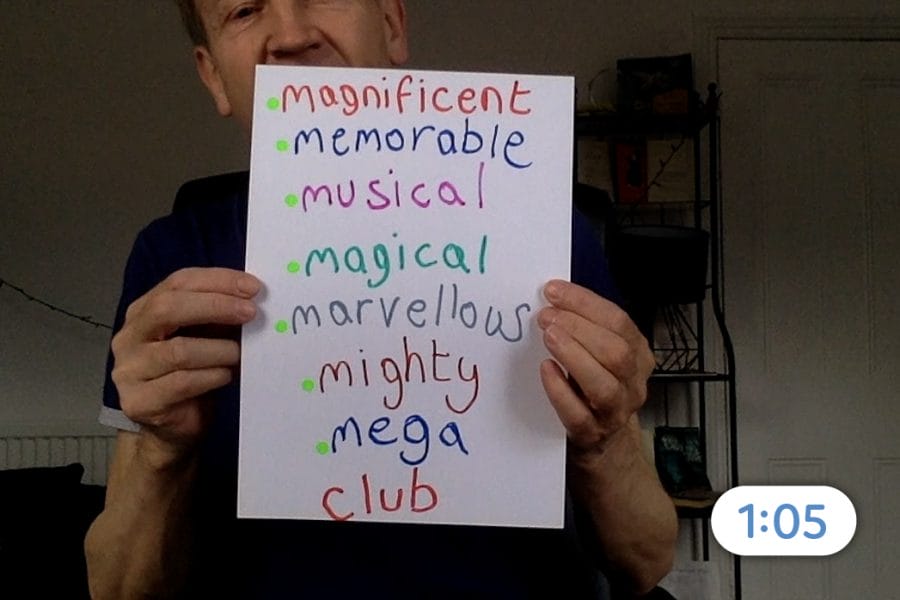 • magnificent
• memorable
• musical
• magical
• marvellous
• mighty
• mega
club
1:05